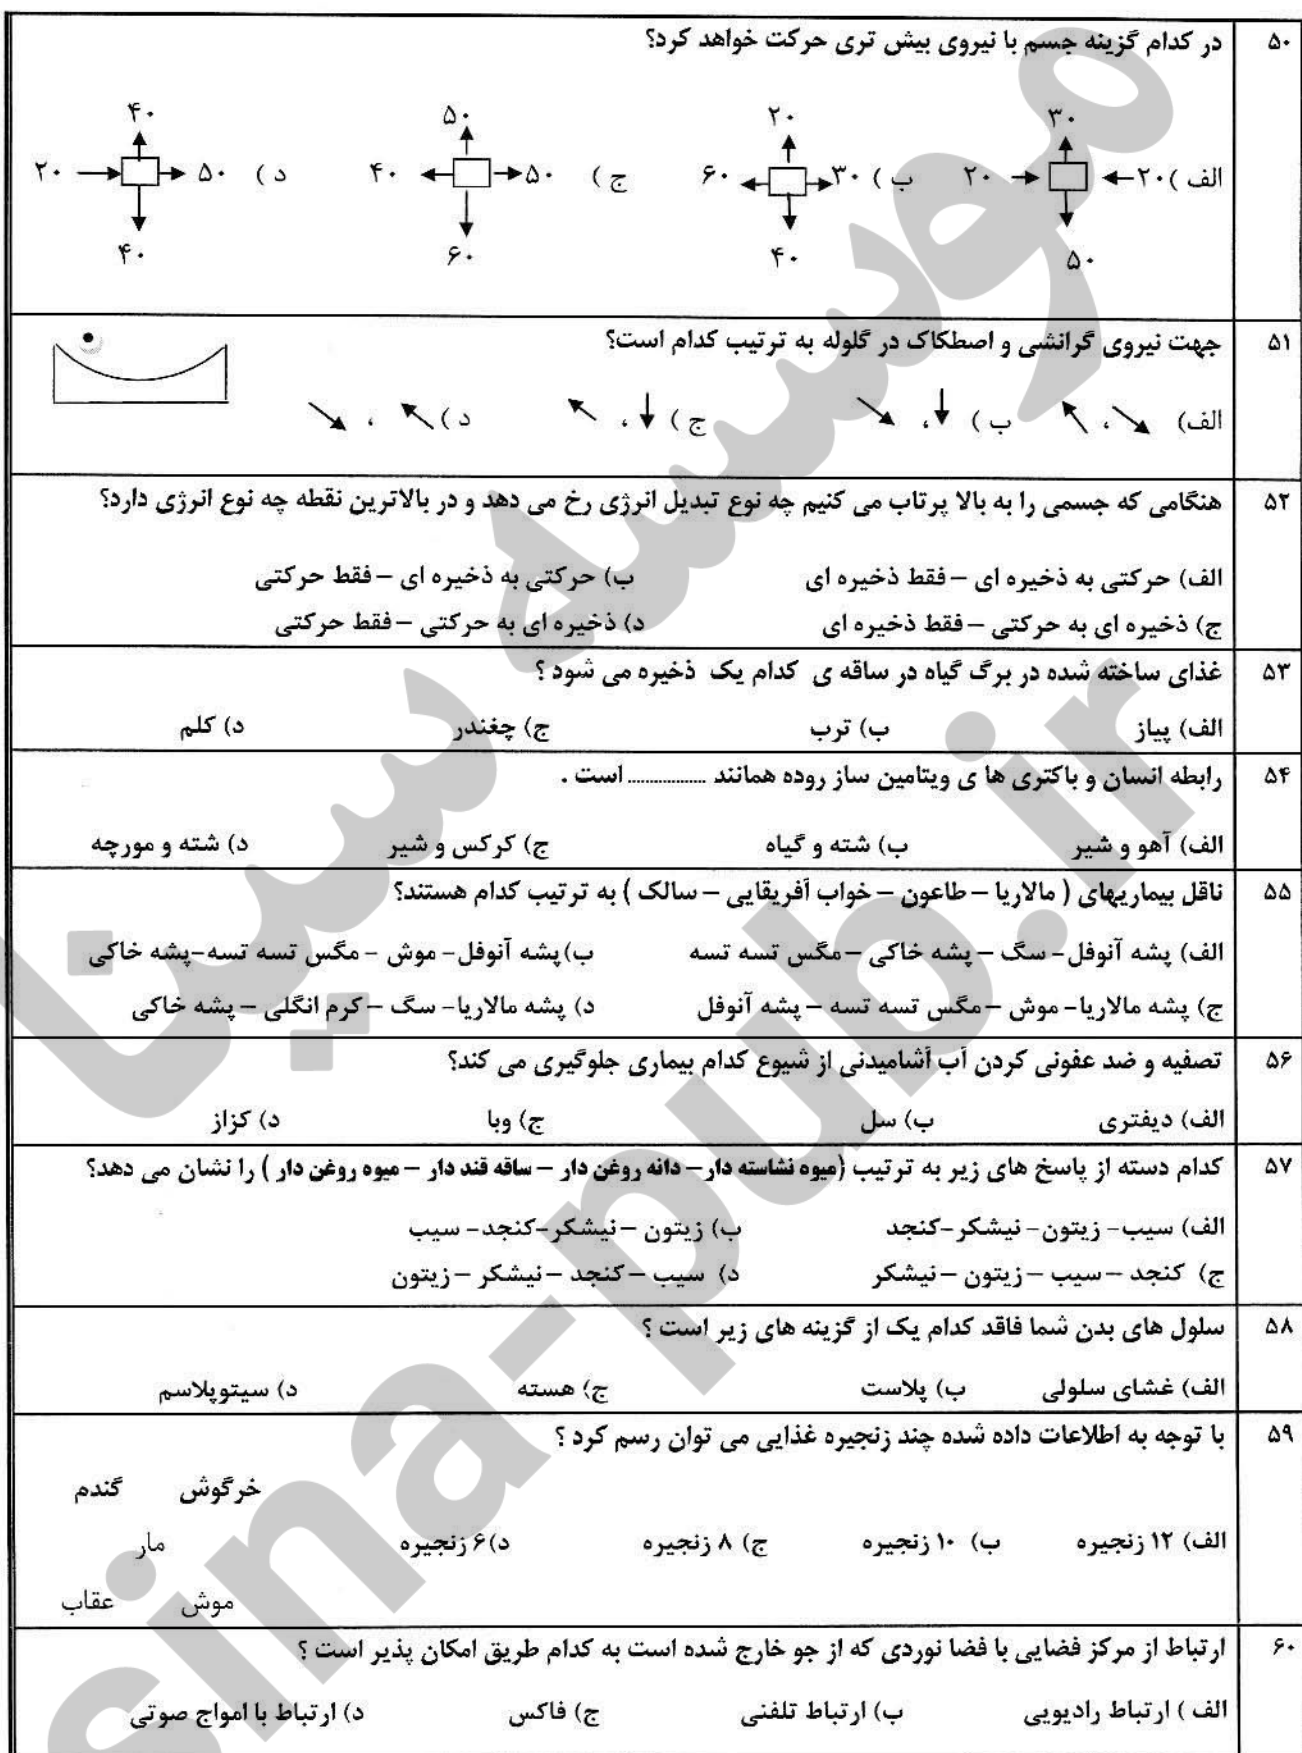 ۵۰ در کدام گزینه جسم با نیروی بیش تری حرکت خواهد کرد؟
۳۰ ۲۰ ۵۰ ۴۰
الف )۲۰ ۲۰ ب ) ۳۰ ۶۰ ج ) ۵۰ ۴۰ د ) ۵۰ ۲۰
۵۰ ۴۰ ۶۰ ۴۰
۵۱ جهت نیروی گرانشی و اصطکاک در گلوله به ترتیب کدام است؟
الف) ، ب ) ، ج ) ، د ) ،
۵۲ هنگامی که جسمی را به بالا پرتاب می کنیم چه نوع تبدیل انرژی رخ می دهد و در بالاترین نقطه چه نوع انرژی دارد؟
الف) حرکتی به ذخیره ای – فقط ذخیره ای ب) حرکتی به ذخیره ای – فقط حرکتی
ج) ذخیره ای به حرکتی – فقط ذخیره ای د) ذخیره ای به حرکتی – فقط حرکتی
۵۳ غذای ساخته شده در برگ گیاه در ساقه ی کدام یک ذخیره می شود ؟
الف) پیاز ب) ترب ج) چغندر د) کلم
۵۴ رابطه انسان و باکتری ها ی ویتامین ساز روده همانند ................ است .
الف) آهو و شیر ب) شته و گیاه ج) کرکس و شیر د) شته و مورچه
۵۵ ناقل بیماریهای ( مالاریا – طاعون – خواب آفریقایی – سالک ) به ترتیب کدام هستند؟
الف) پشه آنوفل- سگ – پشه خاکی – مگس تسه تسه ب)پشه آنوفل- موش - مگس تسه تسه-پشه خاکی
ج) پشه مالاریا- موش – مگس تسه تسه – پشه آنوفل د) پشه مالاریا- سگ – کرم انگلی – پشه خاکی
۵۶ تصفیه و ضد عفونی کردن آب آشامیدنی از شیوع کدام بیماری جلوگیری می کند؟
الف) دیفتری ب) سل ج) وبا د) کزاز
۵۷ کدام دسته از پاسخ های زیر به ترتیب (میوه نشاسته دار– دانه روغن دار – ساقه قند دار – میوه روغن دار ) را نشان می دهد؟
الف) سیب- زیتون- نیشکر-کنجد ب) زیتون – نیشکر-کنجد- سیب
ج) کنجد – سیب – زیتون – نیشکر د) سیب – کنجد – نیشکر – زیتون
۵۸ سلول های بدن شما فاقد کدام یک از گزینه های زیر است ؟
الف) غشای سلولی ب) پلاست ج) هسته د) سیتوپلاسم
۵۹ با توجه به اطلاعات داده شده چند زنجیره غذایی می توان رسم کرد ؟
خرگوش گندم
الف) ۱۲ زنجیره ب) ۱۰ زنجیره ج) ۸ زنجیره د)۶ زنجیره مار
موش عقاب
۶۰ ارتباط از مرکز فضایی با فضا نوردی که از جو خارج شده است به کدام طریق امکان پذیر است ؟
الف ) ارتباط رادیویی ب) ارتباط تلفنی ج) فاکس د) ارتباط با امواج صوتی
موسسه سینا
sina-pub.ir